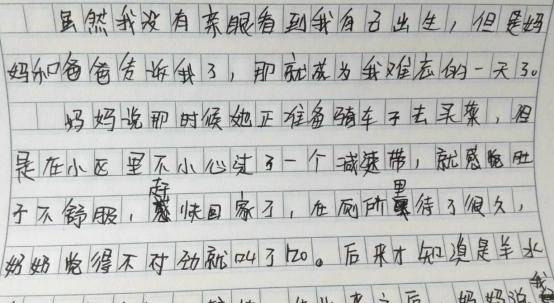 虽然我没有亲眼看到我自己出生，但是妈
妈和爸爸告诉我了，那就成为我难忘的一天了。
妈妈说那时候她正准备骑车子去买菜，但
是在小区里不小心过了一个减速带，就感觉肚
子不舒服，赶快回家了，在厕所里待了很久，
奶奶觉得不对劲就叫了120。后来才知道是羊水